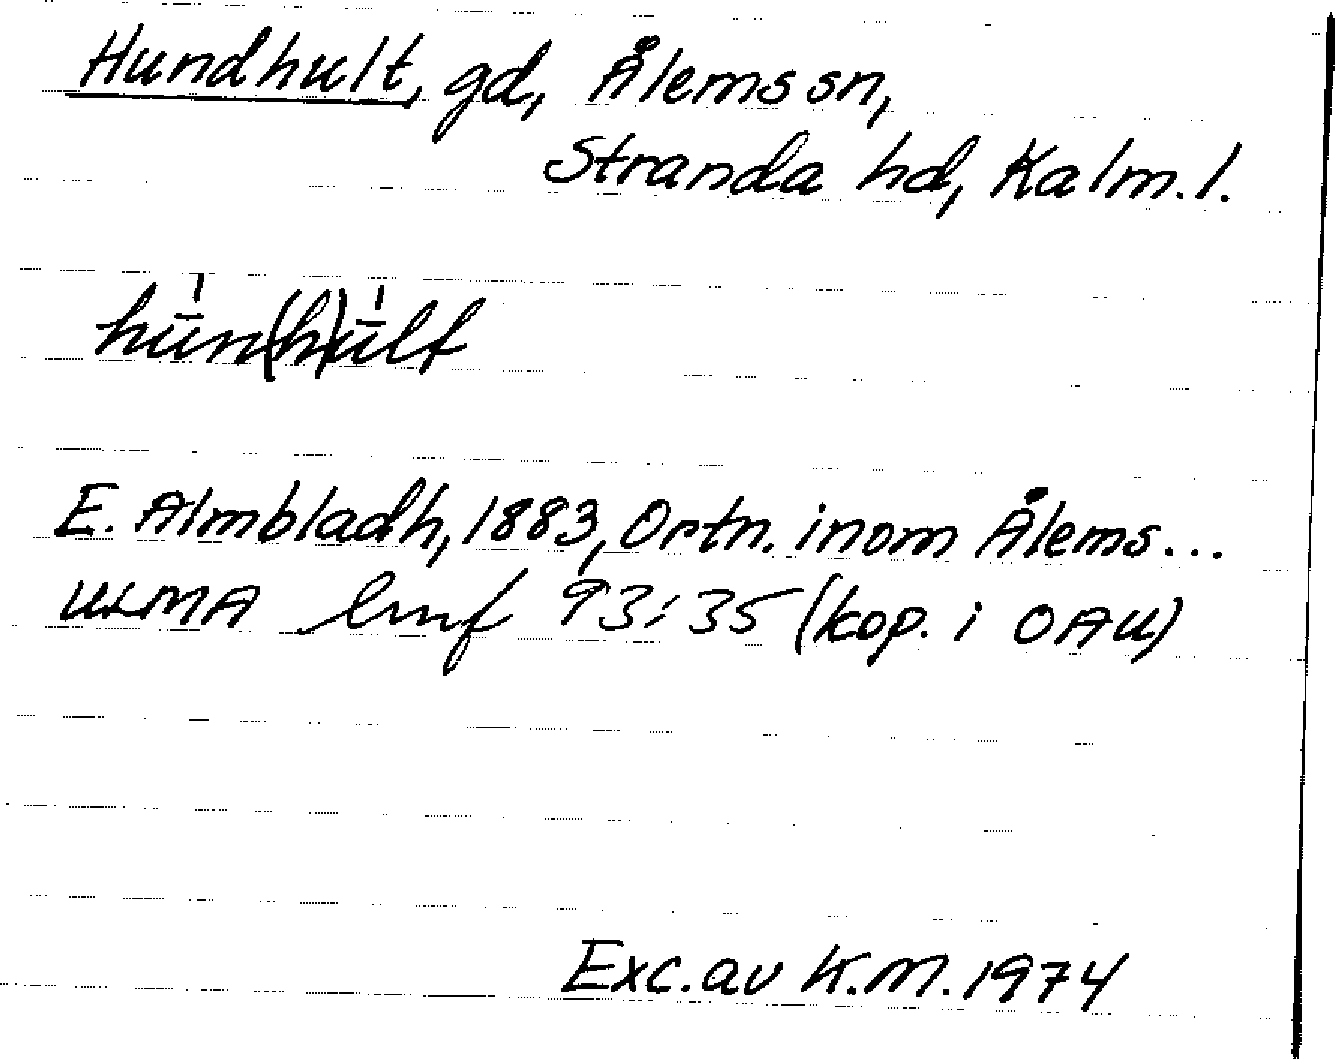 Hundhult, gd, Ålems sn,
Stranda hd, Kalm. l.
hūn(h)ūlt
E. Almbladh, 1883, Ortn. inom Ålems...
ULMA lmf 93:35 (kop. i OAU)
Exc. av K.M. 1974